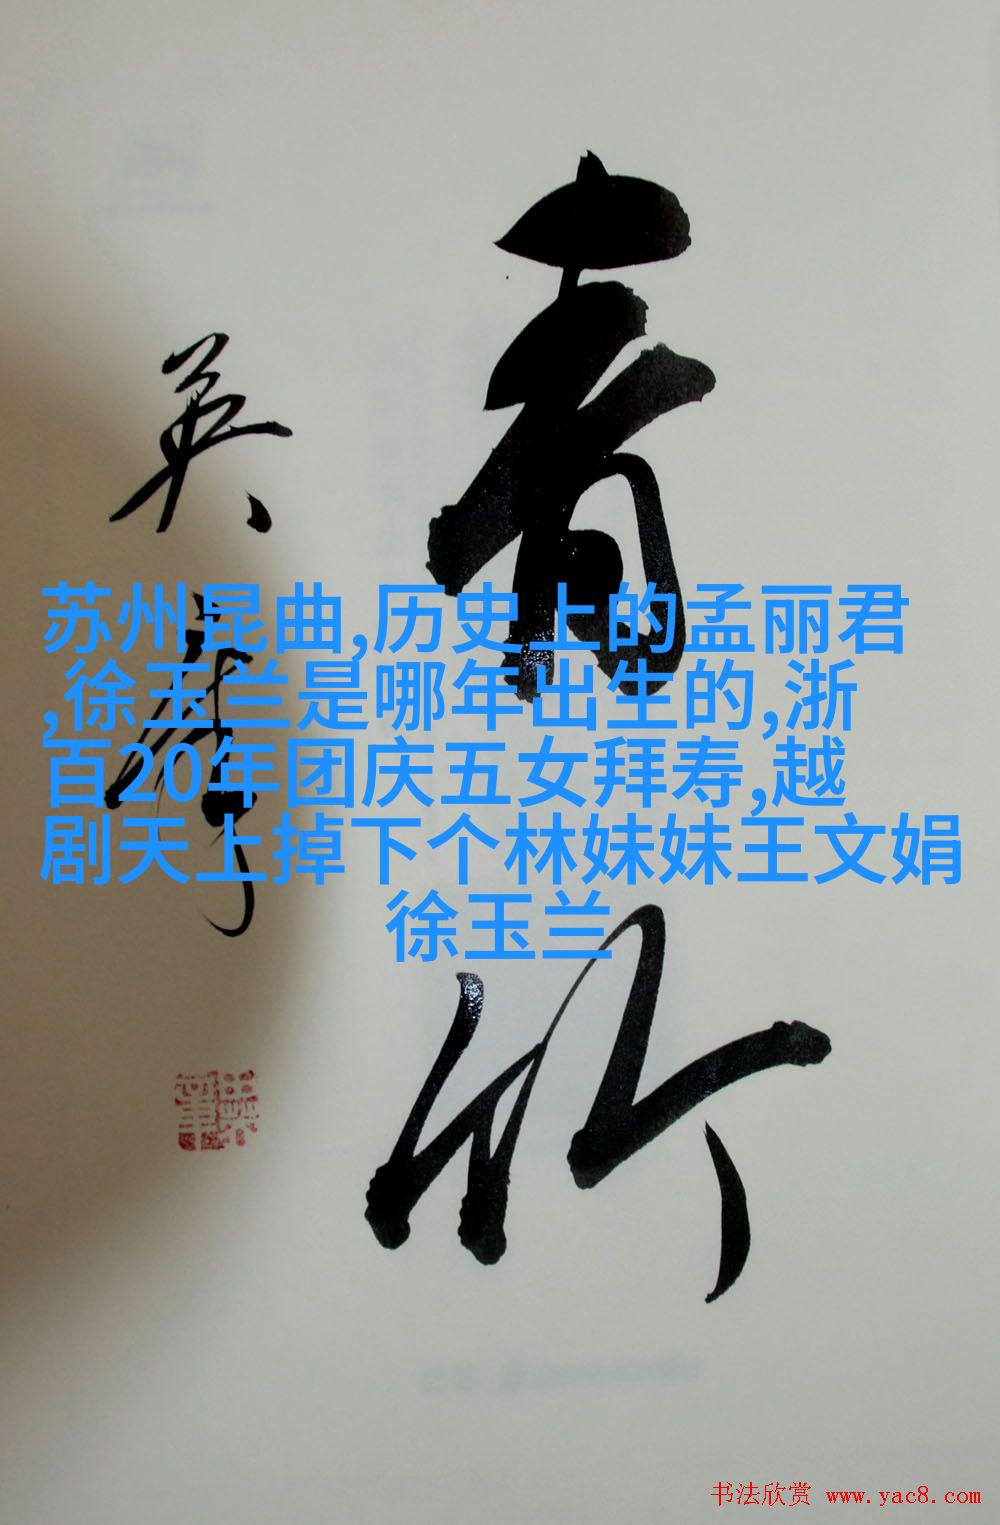 青竹
英
苏州昆曲,历史上的孟丽君
,徐玉兰是哪年出生的,浙
百20年团庆五女拜寿,越
剧天上掉下个林妹妹王文娟
徐玉兰
书法欣赏 www.yac8.com